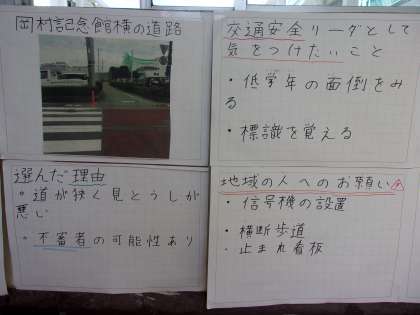 岡村記念館横の道路
選んだ理由
・道が狭く見とうしが
悪い
・不審者の可能性あり
交通安全リーダとして
気をつけたいこと
・低学年の面倒をみ
る
・標識を覚える
地域の人へのお願い
・信号機の設置
・横断歩道
・止まれ看板